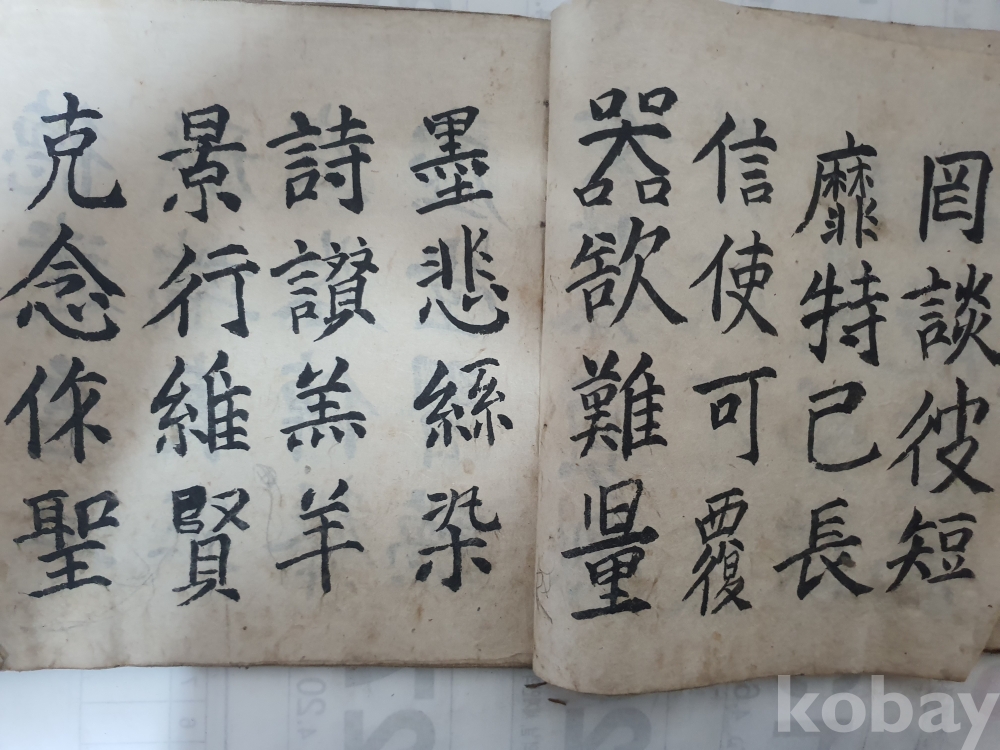 罔談彼短
靡特己長
信使可覆
器欲難量
墨悲絲染
詩讃羔羊
景行維賢
克念作聖
kobay